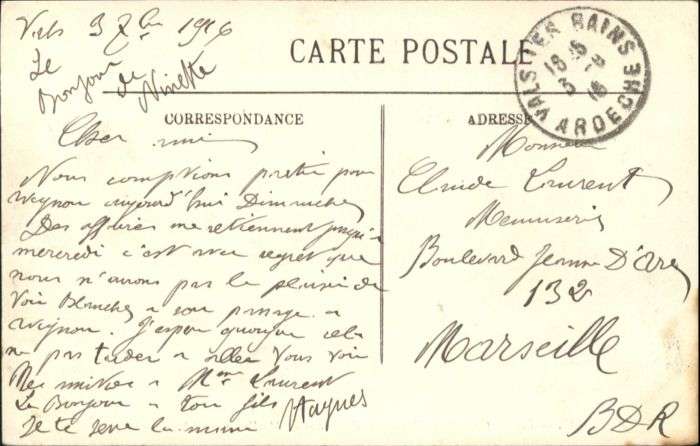 Vals 3 7bre 1916
Le
Bonjour
de
Ninette
CARTE POSTALE
VALS LES BAINS
18 15
3 -9
16
ARDECHE
CORRESPONDANCE
Cher ami
Nous comptions partir pour
Veynon aujourd'hui Dimanche
Des affaires me retiennent jusqu'à
mercredi c'est avec regret que
nous n'aurons pas le plaisir de
voir Blanche a son passage a
Veynon. J'espere quoique cela
ne pas tarder a aller vous voir
Mes amities a Mme Laurent
Le Bonjour a ton fils
Je te serre la main
Hugues
ADRESSE
Monsieur
Claude Laurent
Menuiserie
Boulevard Jeanne D'Arc
132
Marseille
BDR